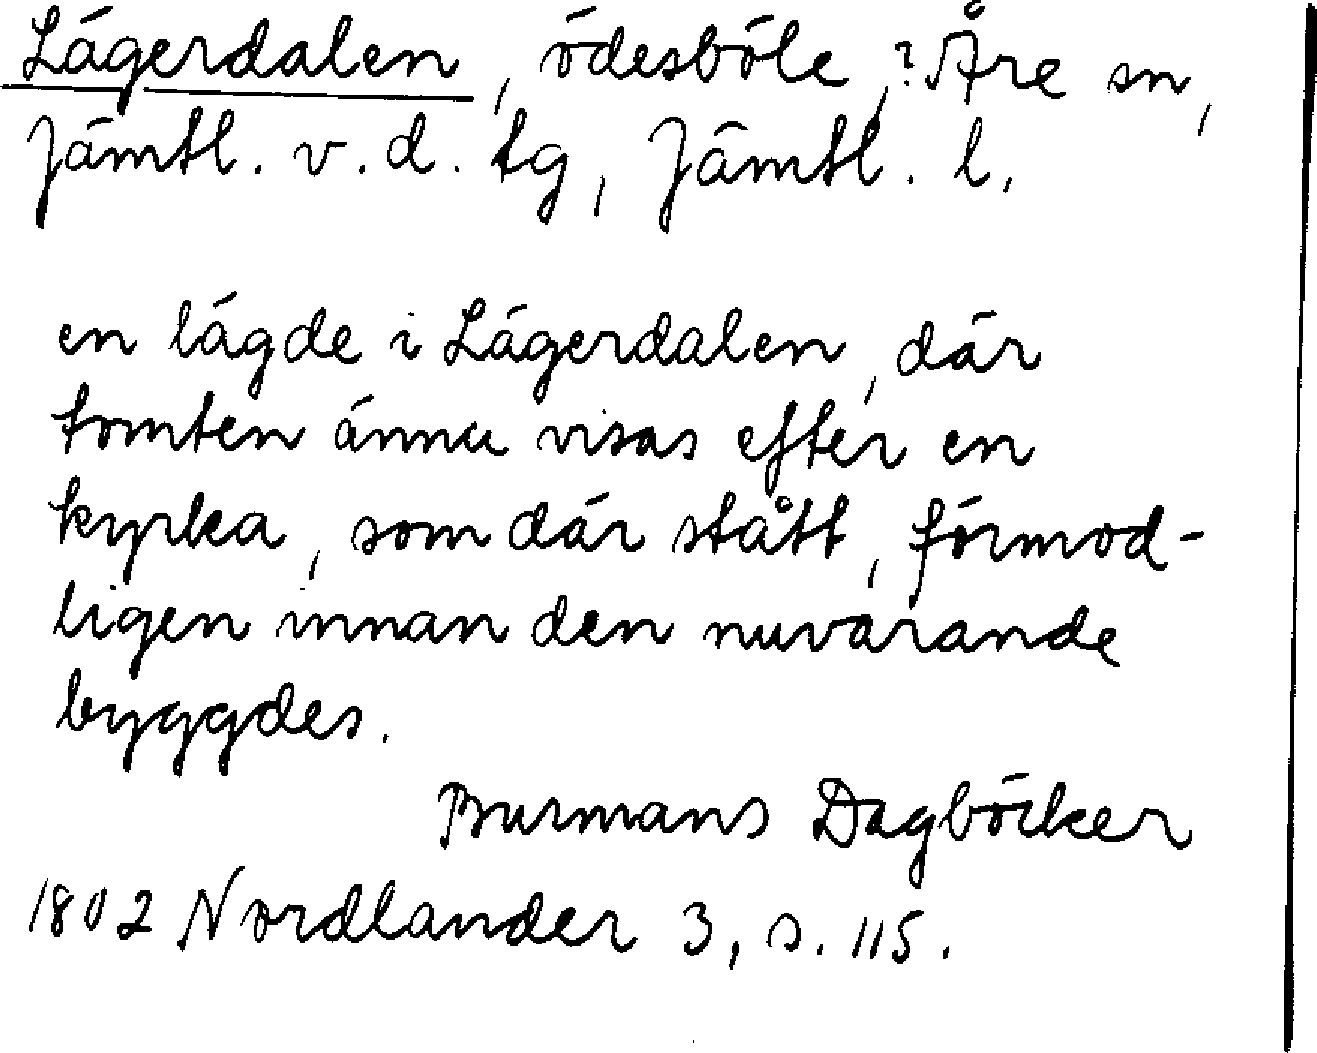 Lägerdalen, ödesböle, ? Åre sn,
Jämtl. v. d. tg, Jämtl. l.
en lägde i Lägerdalen, där
tomten ännu visas efter en
kyrka, som där stått, förmod-
ligen innan den nuvarande
byggdes.
Burmans Dagböcker
1802 Nordlander 3, s. 115.